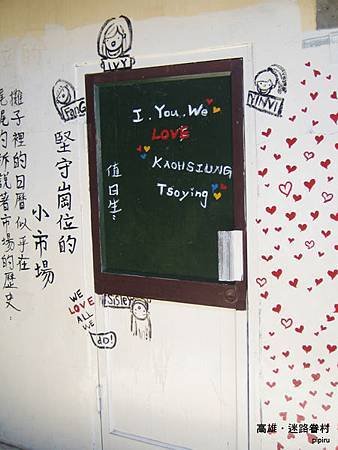 IVY
FanG
YINVI
I. You. We
LOVE
KAOHSIUNG
Tsoying
值日生:
堅守崗位的
小市場
攤子裡的日曆似乎在
娓娓的訴說著市場的歷史
WE
LOVE
ALL
WE
do!
Sisley
高雄・迷路眷村
pipiru